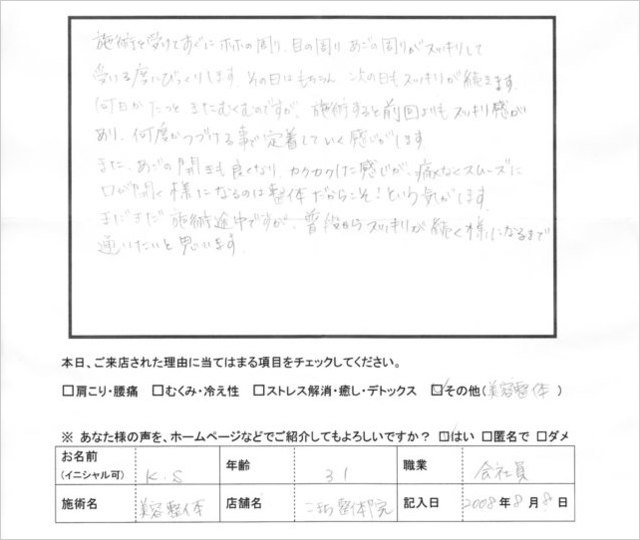 施術を受けてすぐにホホの周り、目の周り、あごの周りがスッキリして
受ける度にびっくりします。その日はもちろん、次の日もスッキリが続きます。
何日かたつと、またむくむのですが、施術すると前回よりもスッキリ感が
あり、何度かつづける事で定着していく感じがします。
また、あごの開きも良くなり、カクカクした感じが、痛みなくスムーズに
口が開く様になるのは整体だからこそ!という気がします。
まだまだ施術途中ですが、普段からスッキリが続く様になるまで
通いたいと思います。
本日、ご来店された理由に当てはまる項目をチェックしてください。
□肩こり・腰痛 □むくみ・冷え性 □ストレス解消・癒し・デトックス ☑その他(美容整体)
※ あなた様の声を、ホームページなどでご紹介してもよろしいですか? ☑はい □匿名で □ダメ
お名前 (イニシャル可) K.S 年齢 31 職業 会社員
施術名 美容整体 店舗名 整体院 記入日 2008年8月8日